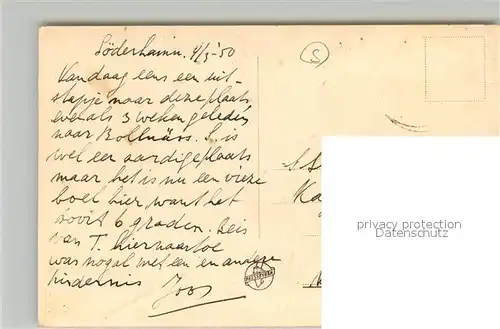 Söderhamn. 4/3-'50
Vandaag eens een uit-
stapje naar deze plaats
evenals 3 weken geleden
naar Bollnäss. S. is
wel een aardige plaats
maar het is nu een vieze
boel hier want het
is 6 graden. Reis
van T. hiernaartoe
was nogal met een en andere
hindernis Joos
S
privacy protection
Datenschutz